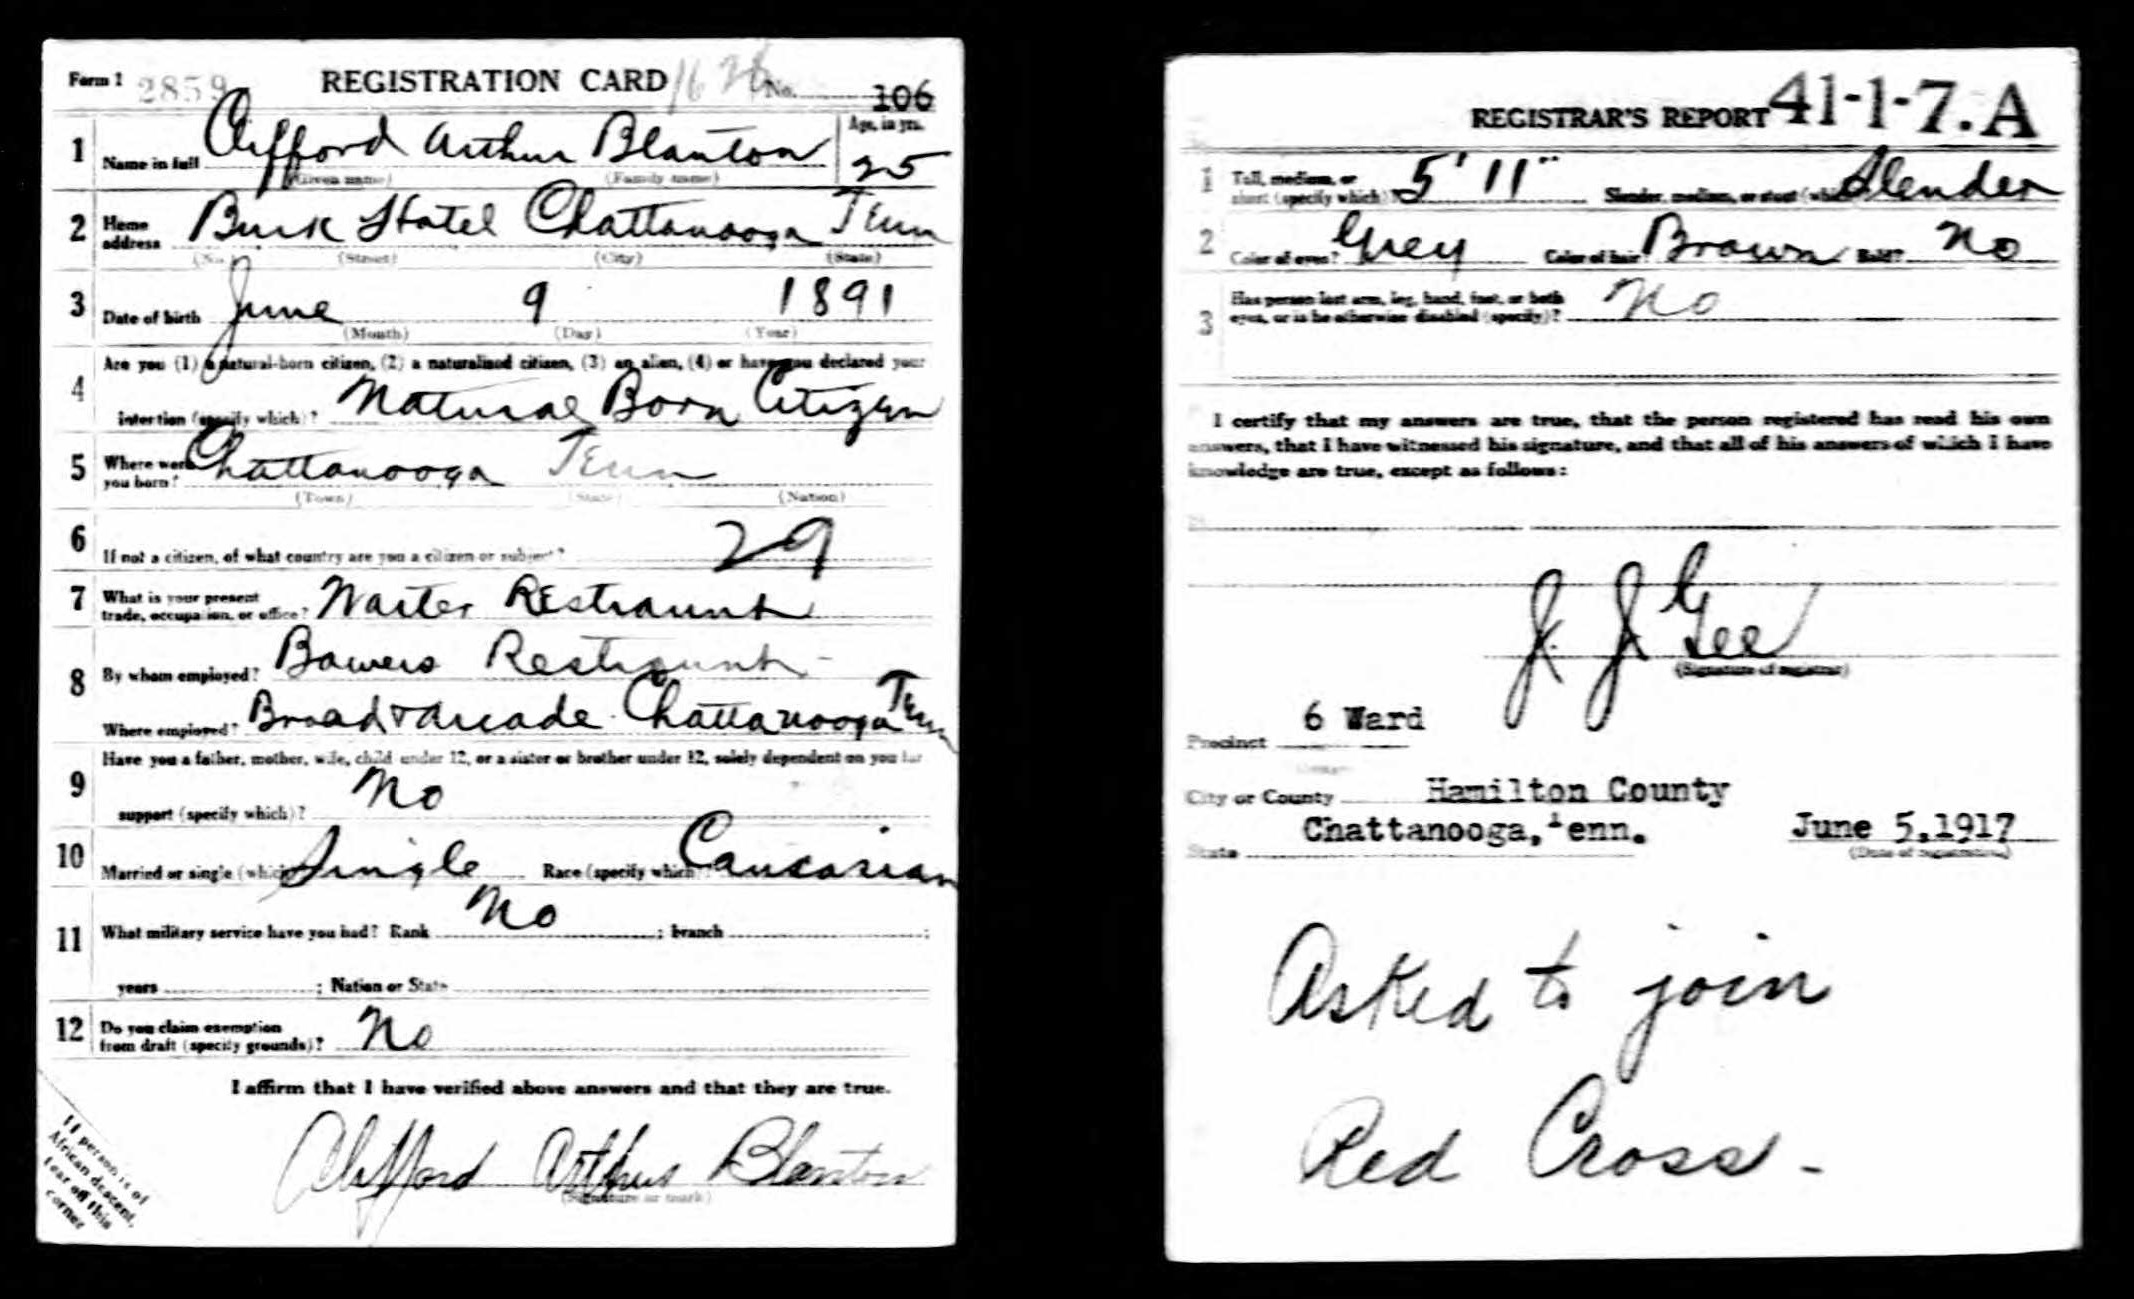 Form 1 2859 REGISTRATION CARD No. 106
1 Name in full Clifford Arthur Blanton Age, in yrs. 25
(Given name) (Family name)
2 Home address Burk Hotel Chattanooga Tenn
(No.) (Street) (City) (State)
3 Date of birth June 9 1891
(Month) (Day) (Year)
4 Are you (1) a natural-born citizen, (2) a naturalized citizen, (3) an alien, (4) or have you declared your
intention (specify which)? Natural Born Citizen
5 Where were you born? Chattanooga Tenn
(Town) (State) (Nation)
6 If not a citizen, of what country are you a citizen or subject? 29
7 What is your present trade, occupation, or office? Waiter Restraunt
8 By whom employed? Bowers Restraunt
Where employed? Broad & Arcade Chattanooga Tenn
9 Have you a father, mother, wife, child under 12, or a sister or brother under 12, solely dependent on you for
support (specify which)? No
10 Married or single (which)? Single Race (specify which)? Caucasian
11 What military service have you had? Rank No ; branch ;
years ; Nation or State
12 Do you claim exemption from draft (specify grounds)? No
I affirm that I have verified above answers and that they are true.
Clifford Arthur Blanton
(Signature or mark)
If person is of
African descent,
tear off this
corner
REGISTRAR'S REPORT 41-1-7.A
1 Tall, medium, or short (specify which)? 5' 11" Slender, medium, or stout (which)? Slender
2 Color of eyes? Grey Color of hair Brown Bald? No
3 Has person lost arm, leg, hand, foot, or both eyes, or is he otherwise disabled (specify)? No
I certify that my answers are true, that the person registered has read his own
answers, that I have witnessed his signature, and that all of his answers of which I have
knowledge are true, except as follows:
J. J. Gee
(Signature of registrar)
Precinct 6 Ward
City or County Hamilton County
State Chattanooga, Tenn. June 5, 1917
(Date of registration)
Asked to join
Red Cross -